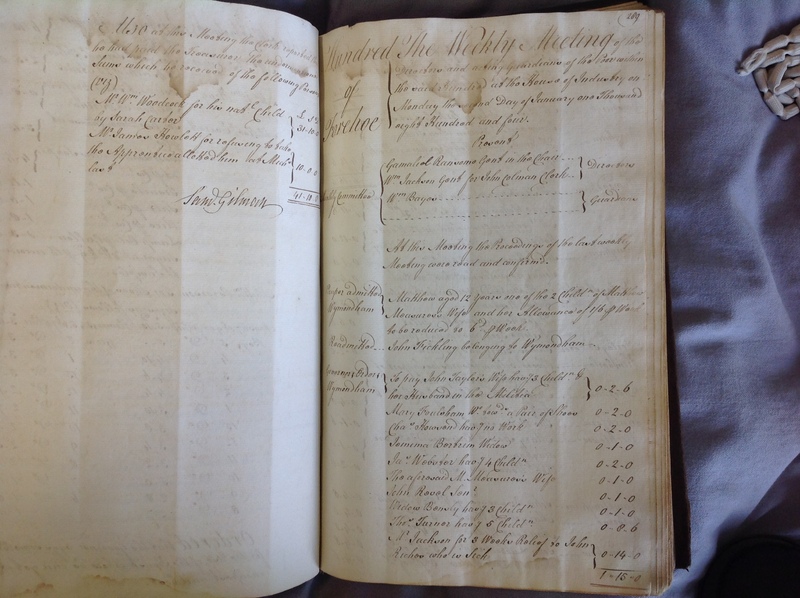 Also at this Meeting the Clerk reported
he had paid the Treasurer the undermentioned
Sums which he rec'd of the following Persons
(viz)
£ s d
Mr Wm Woodcock for his nat.l Child
by Sarah Carver
31-10-0
Mr James Howlett for refusing to take
the Apprentice allotted him at Mich.s
last
10-0-0
41-10-0
Sam.l Gilman
289
Hundred
of
Forehoe
The Weekly Meeting of the
Directors and acting Guardians of the Poor within
the said Hundred at the House of Industry on
Monday the Day of January one Thousand
eight Hundred and four.
Present
Weekly Committee
Gamaliel Ransome Gent in the Chair
Wm Jackson Gent for John Colman Clerk
Directors
Wm Bayes
Guardians
At this Meeting the Proceedings of the last weekly
Meeting were read and confirmed.
Pauper admitted
Wymondham
Matthew aged 12 Years one of the 2 Child.n of Matthew
Wife and her Allowance of 1/6 p Week
to be reduced to 6.d p Week
Readmitted
John Fickling belonging to Wymondham
Wymondham
To pay John Taylor's Wife hav.g 3 Child.n &
her Husband in the Militia
0-2-6
Mary W. a Pair of Shoes
0-2-0
Cha.s hav.g no Work
0-2-0
Jemima Widow
0-1-0
Ja.s Webster hav.g 4 Child.n
0-2-0
The aforesaid M. Wife
0-1-0
John
0-1-0
Widow hav.g 3 Child.n
0-1-0
Tho.s Turner hav.g 5 Child.n
0-8-6
Mr Jackson for 8 Weeks Relief to John
who is Sick
0-14-0
1-15-0